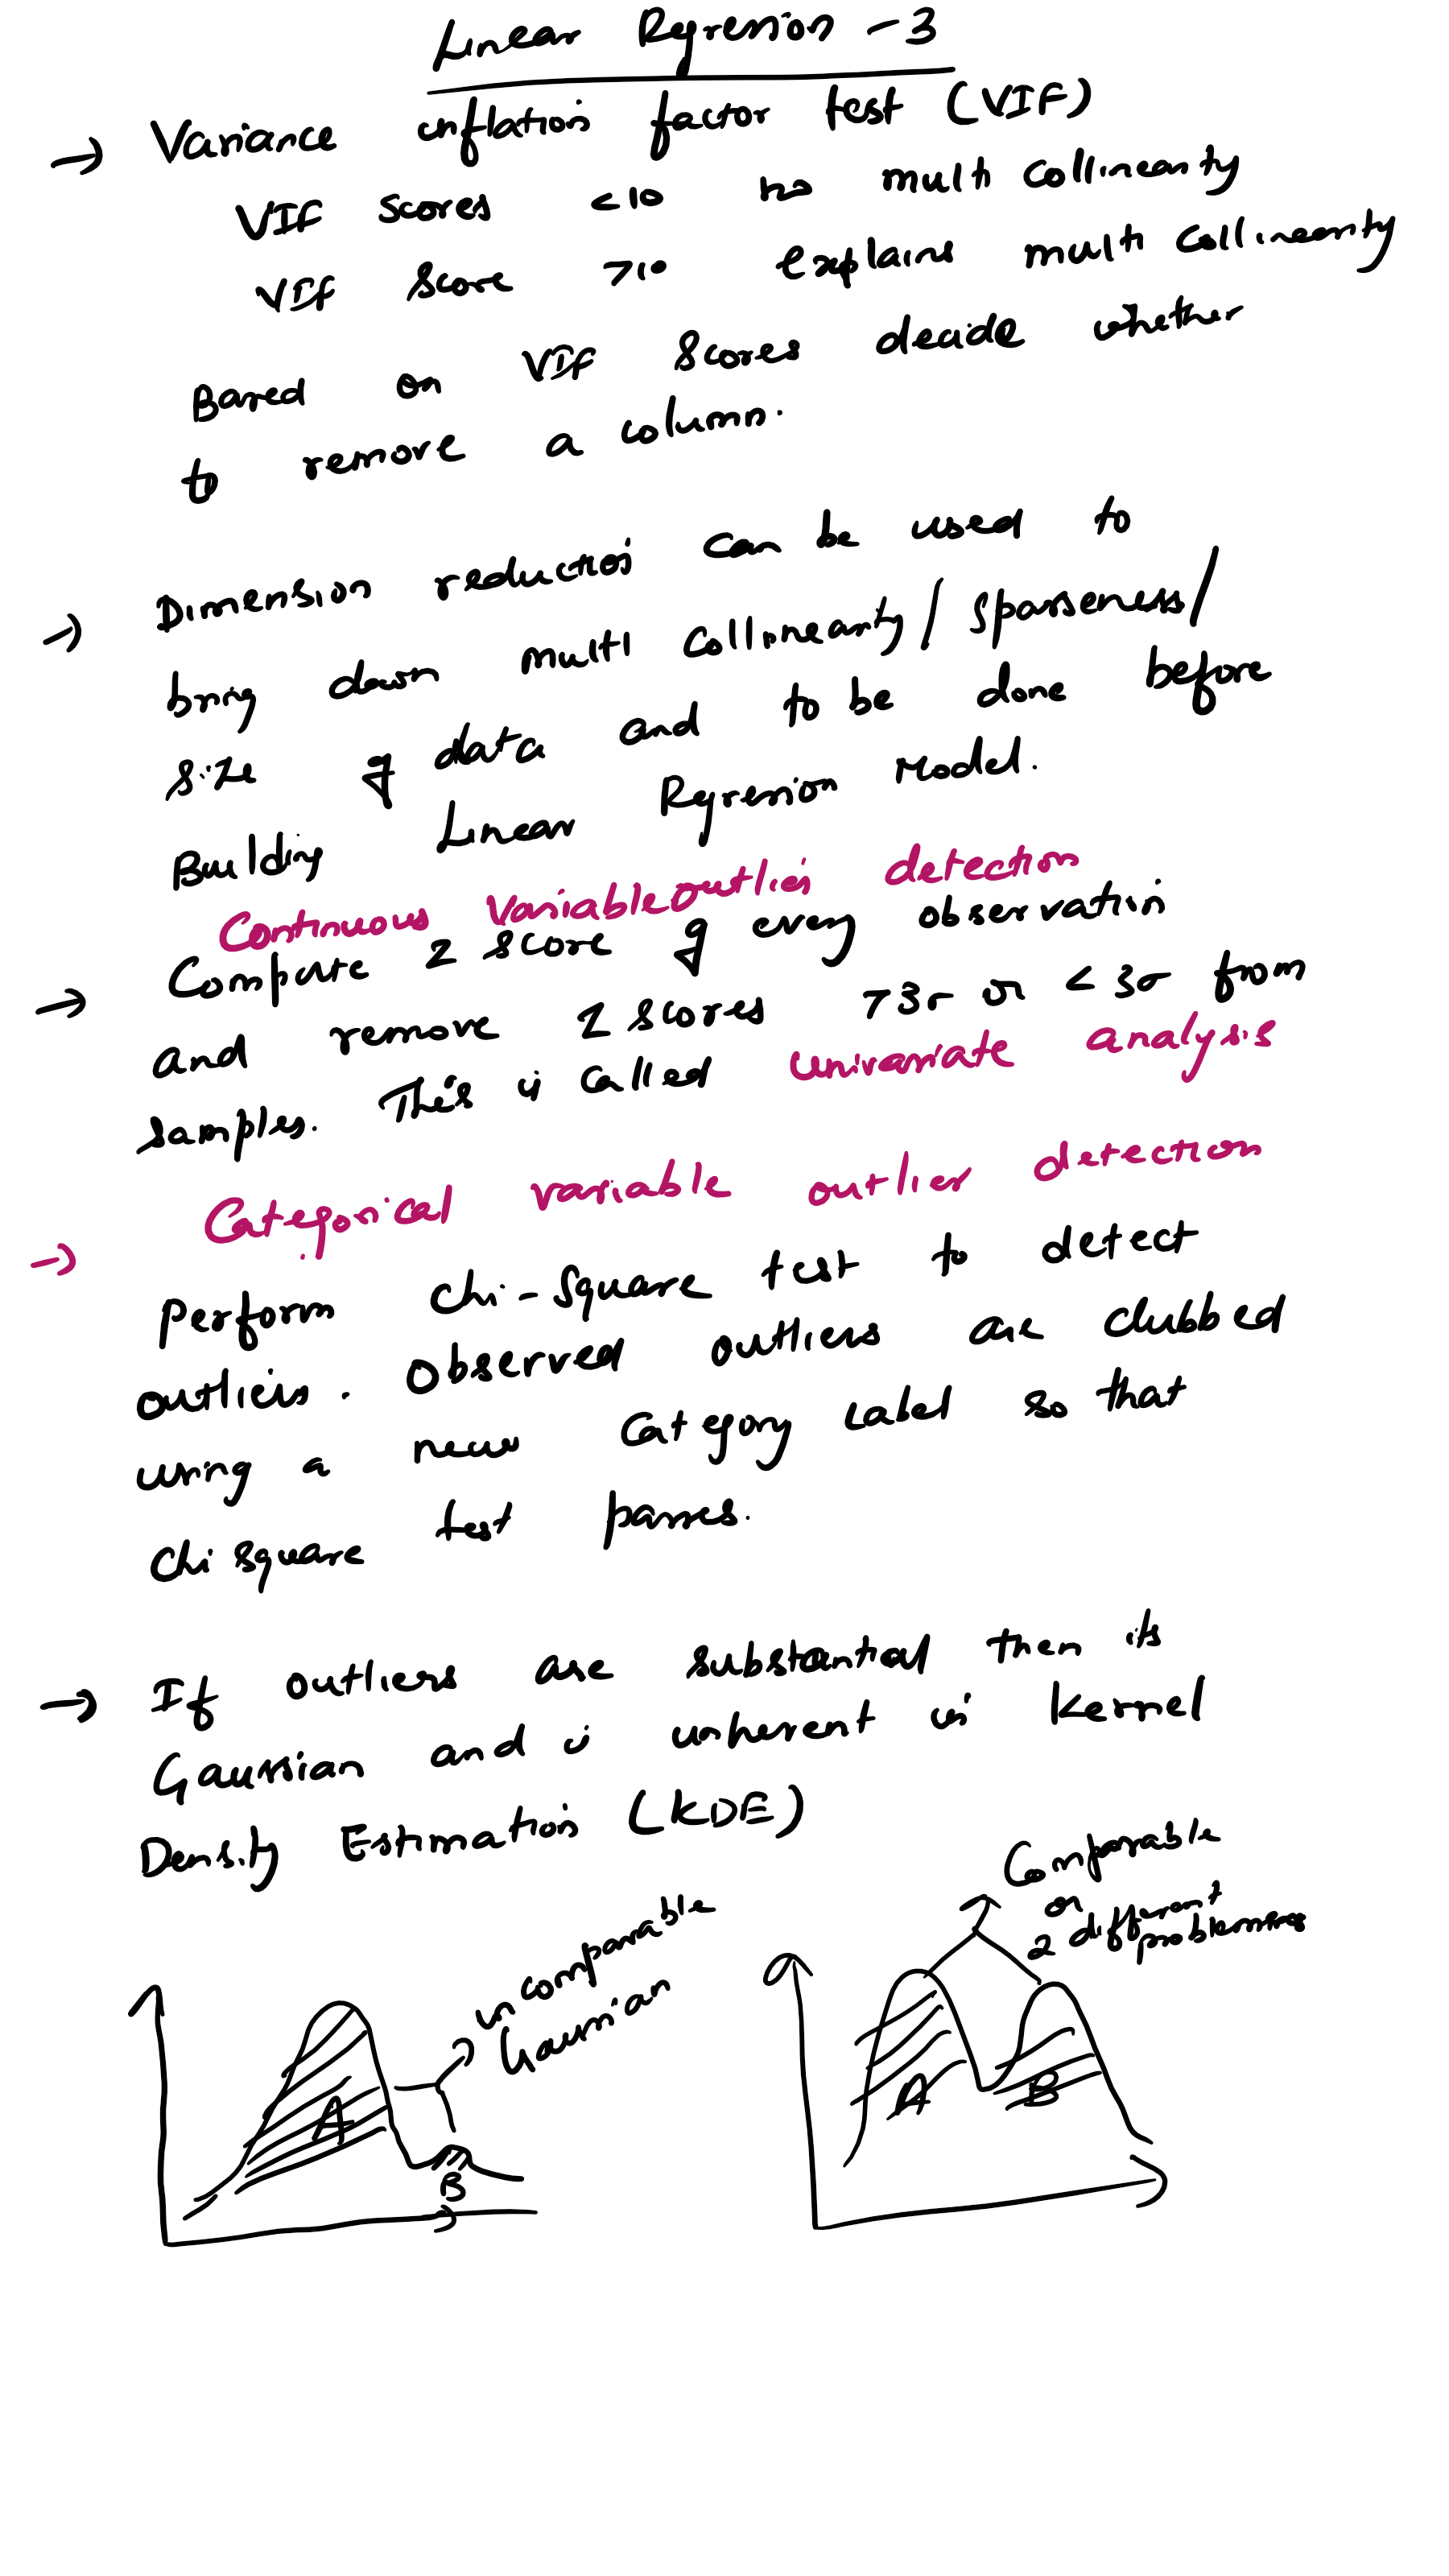 Linear Regression - 3
→ Variance inflation factor test (VIF)
VIF Scores <10 no multi collinearity
VIF Score >10 explains multi collinearity
Based on VIF Scores decide whether
to remove a column.
→ Dimension reduction can be used to
bring down multi collinearity / sparseness /
size of data and to be done before
Building Linear Regression Model.
Continuous Variable outlier detection
→ Compute Z score of every observation
and remove Z scores >3σ or <3σ from
samples. This is called univariate analysis
Categorical variable outlier detection
→ Perform chi-square test to detect
outliers. Observed outliers are clubbed
using a new category label so that
chi square test passes.
→ If outliers are substantial then its
Gaussian and is inherent in kernel
Density Estimation (KDE)
Comparable
or
2 different
uncomparable
Gaussian
A
B
A
B